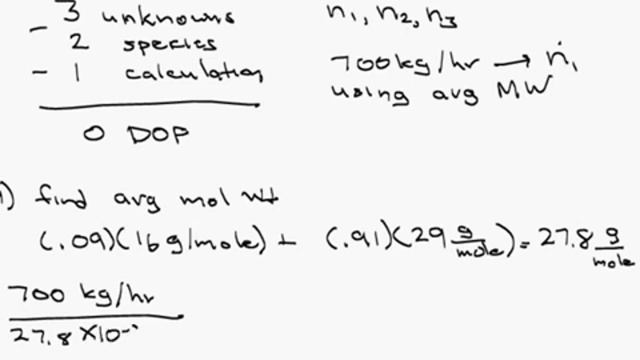 3 unknowns
- 2 species
- 1 calculation
0 DOP
n1, n2, n3
700 kg/hr → ṅ1
using avg MW
1) find avg mol wt
(.09)(16 g/mole) + (.91)(29 g/mole) = 27.8 g/mole
700 kg/hr
27.8 × 10-